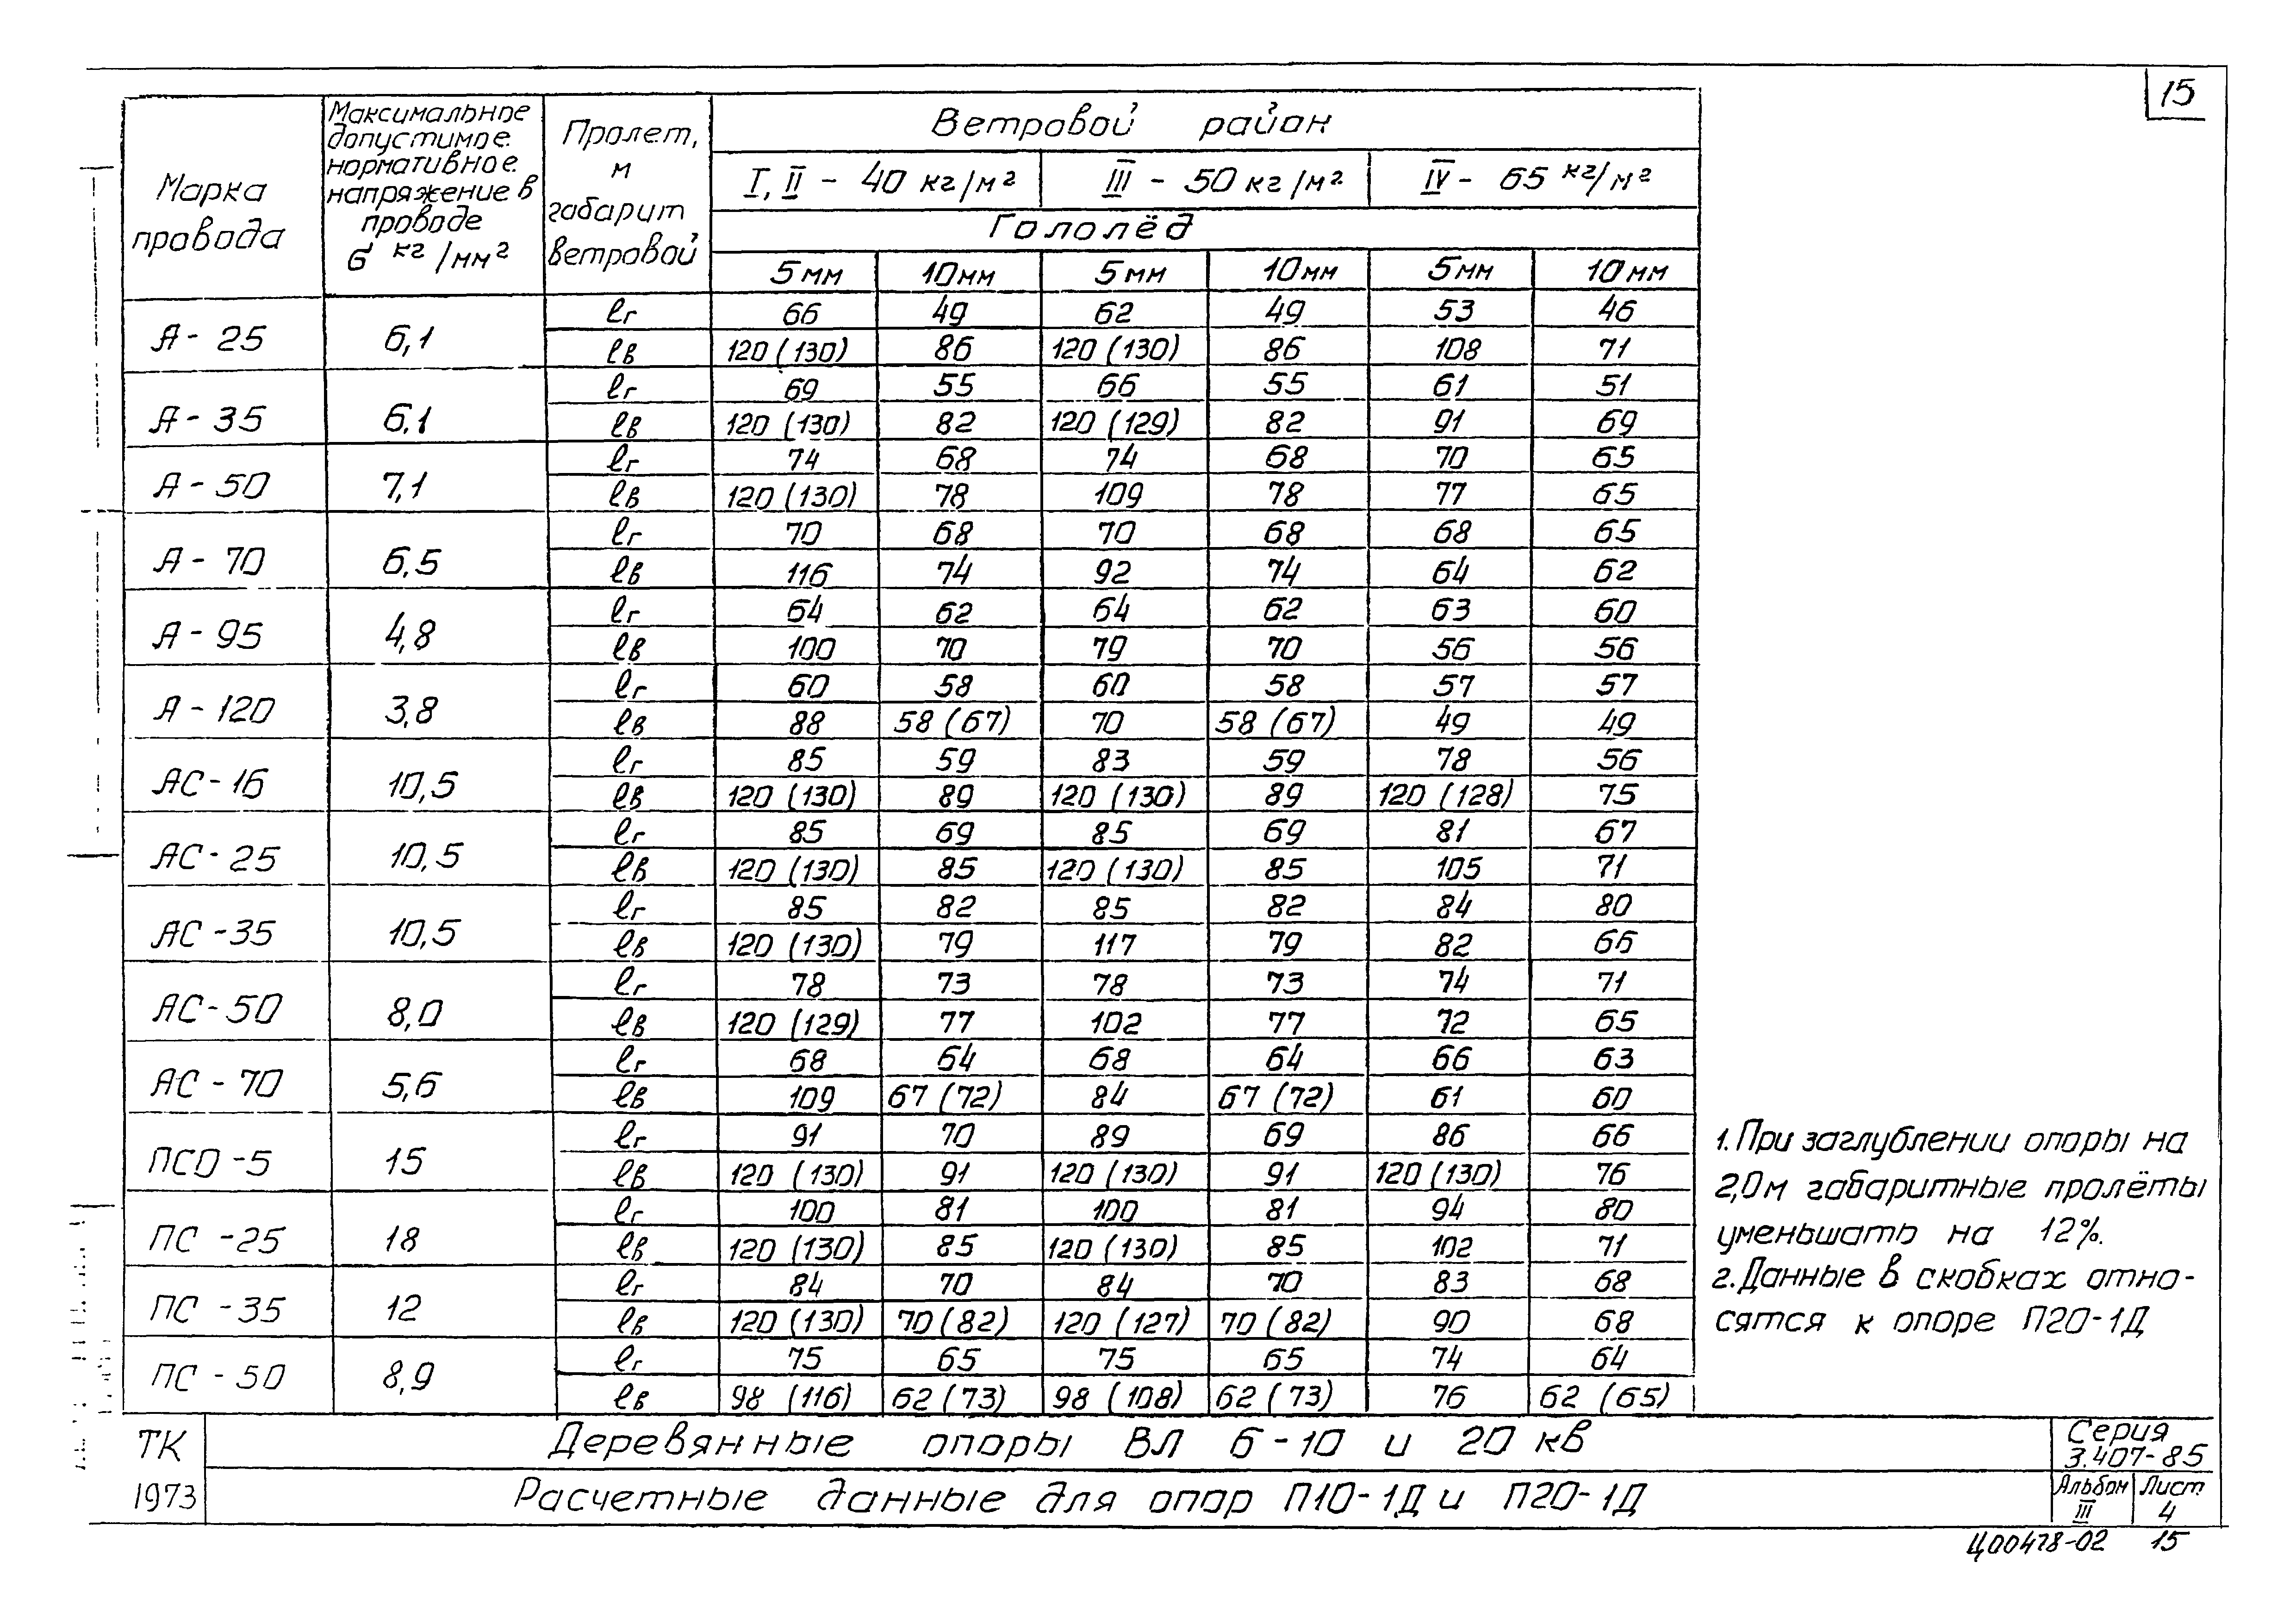 15
Марка провода
Максимальное допустимое нормативное напряжение в проводе σ кг/мм²
Пролет, м габарит ветровой
Ветровой район
I, II - 40 кг/м² III - 50 кг/м² IV - 65 кг/м²
Гололёд
5мм 10мм 5мм 10мм 5мм 10мм
А-25 6,1 ℓг 66 49 62 49 53 46
ℓв 120 (130) 86 120 (130) 86 108 71
А-35 6,1 ℓг 69 55 66 55 61 51
ℓв 120 (130) 82 120 (129) 82 91 69
А-50 7,1 ℓг 74 68 74 68 70 65
ℓв 120 (130) 78 109 78 77 65
А-70 6,5 ℓг 70 68 70 68 68 65
ℓв 116 74 92 74 64 62
А-95 4,8 ℓг 64 62 64 62 63 60
ℓв 100 70 79 70 56 56
А-120 3,8 ℓг 60 58 60 58 57 57
ℓв 88 58 (67) 70 58 (67) 49 49
АС-16 10,5 ℓг 85 59 83 59 78 56
ℓв 120 (130) 89 120 (130) 89 120 (128) 75
АС-25 10,5 ℓг 85 69 85 69 81 67
ℓв 120 (130) 85 120 (130) 85 105 71
АС-35 10,5 ℓг 85 82 85 82 84 80
ℓв 120 (130) 79 117 79 82 66
АС-50 8,0 ℓг 78 73 78 73 74 71
ℓв 120 (129) 77 102 77 72 65
АС-70 5,6 ℓг 68 64 68 64 66 63
ℓв 109 67 (72) 84 67 (72) 61 60
ПСО-5 15 ℓг 91 70 89 69 86 66
ℓв 120 (130) 91 120 (130) 91 120 (130) 76
ПС-25 18 ℓг 100 81 100 81 94 80
ℓв 120 (130) 85 120 (130) 85 102 71
ПС-35 12 ℓг 84 70 84 70 83 68
ℓв 120 (130) 70 (82) 120 (127) 70 (82) 90 68
ПС-50 8,9 ℓг 75 65 75 65 74 64
ℓв 98 (116) 62 (73) 98 (108) 62 (73) 76 62 (65)
1. При заглублении опоры на
2,0м габаритные пролёты
уменьшать на 12%.
2. Данные в скобках отно-
сятся к опоре П20-1Д
ТК
1973
Деревянные опоры ВЛ 6-10 и 20 кв
Расчетные данные для опор П10-1Д и П20-1Д
Серия
3.407-85
Альбом Лист
III 4
Ц00478-02 15